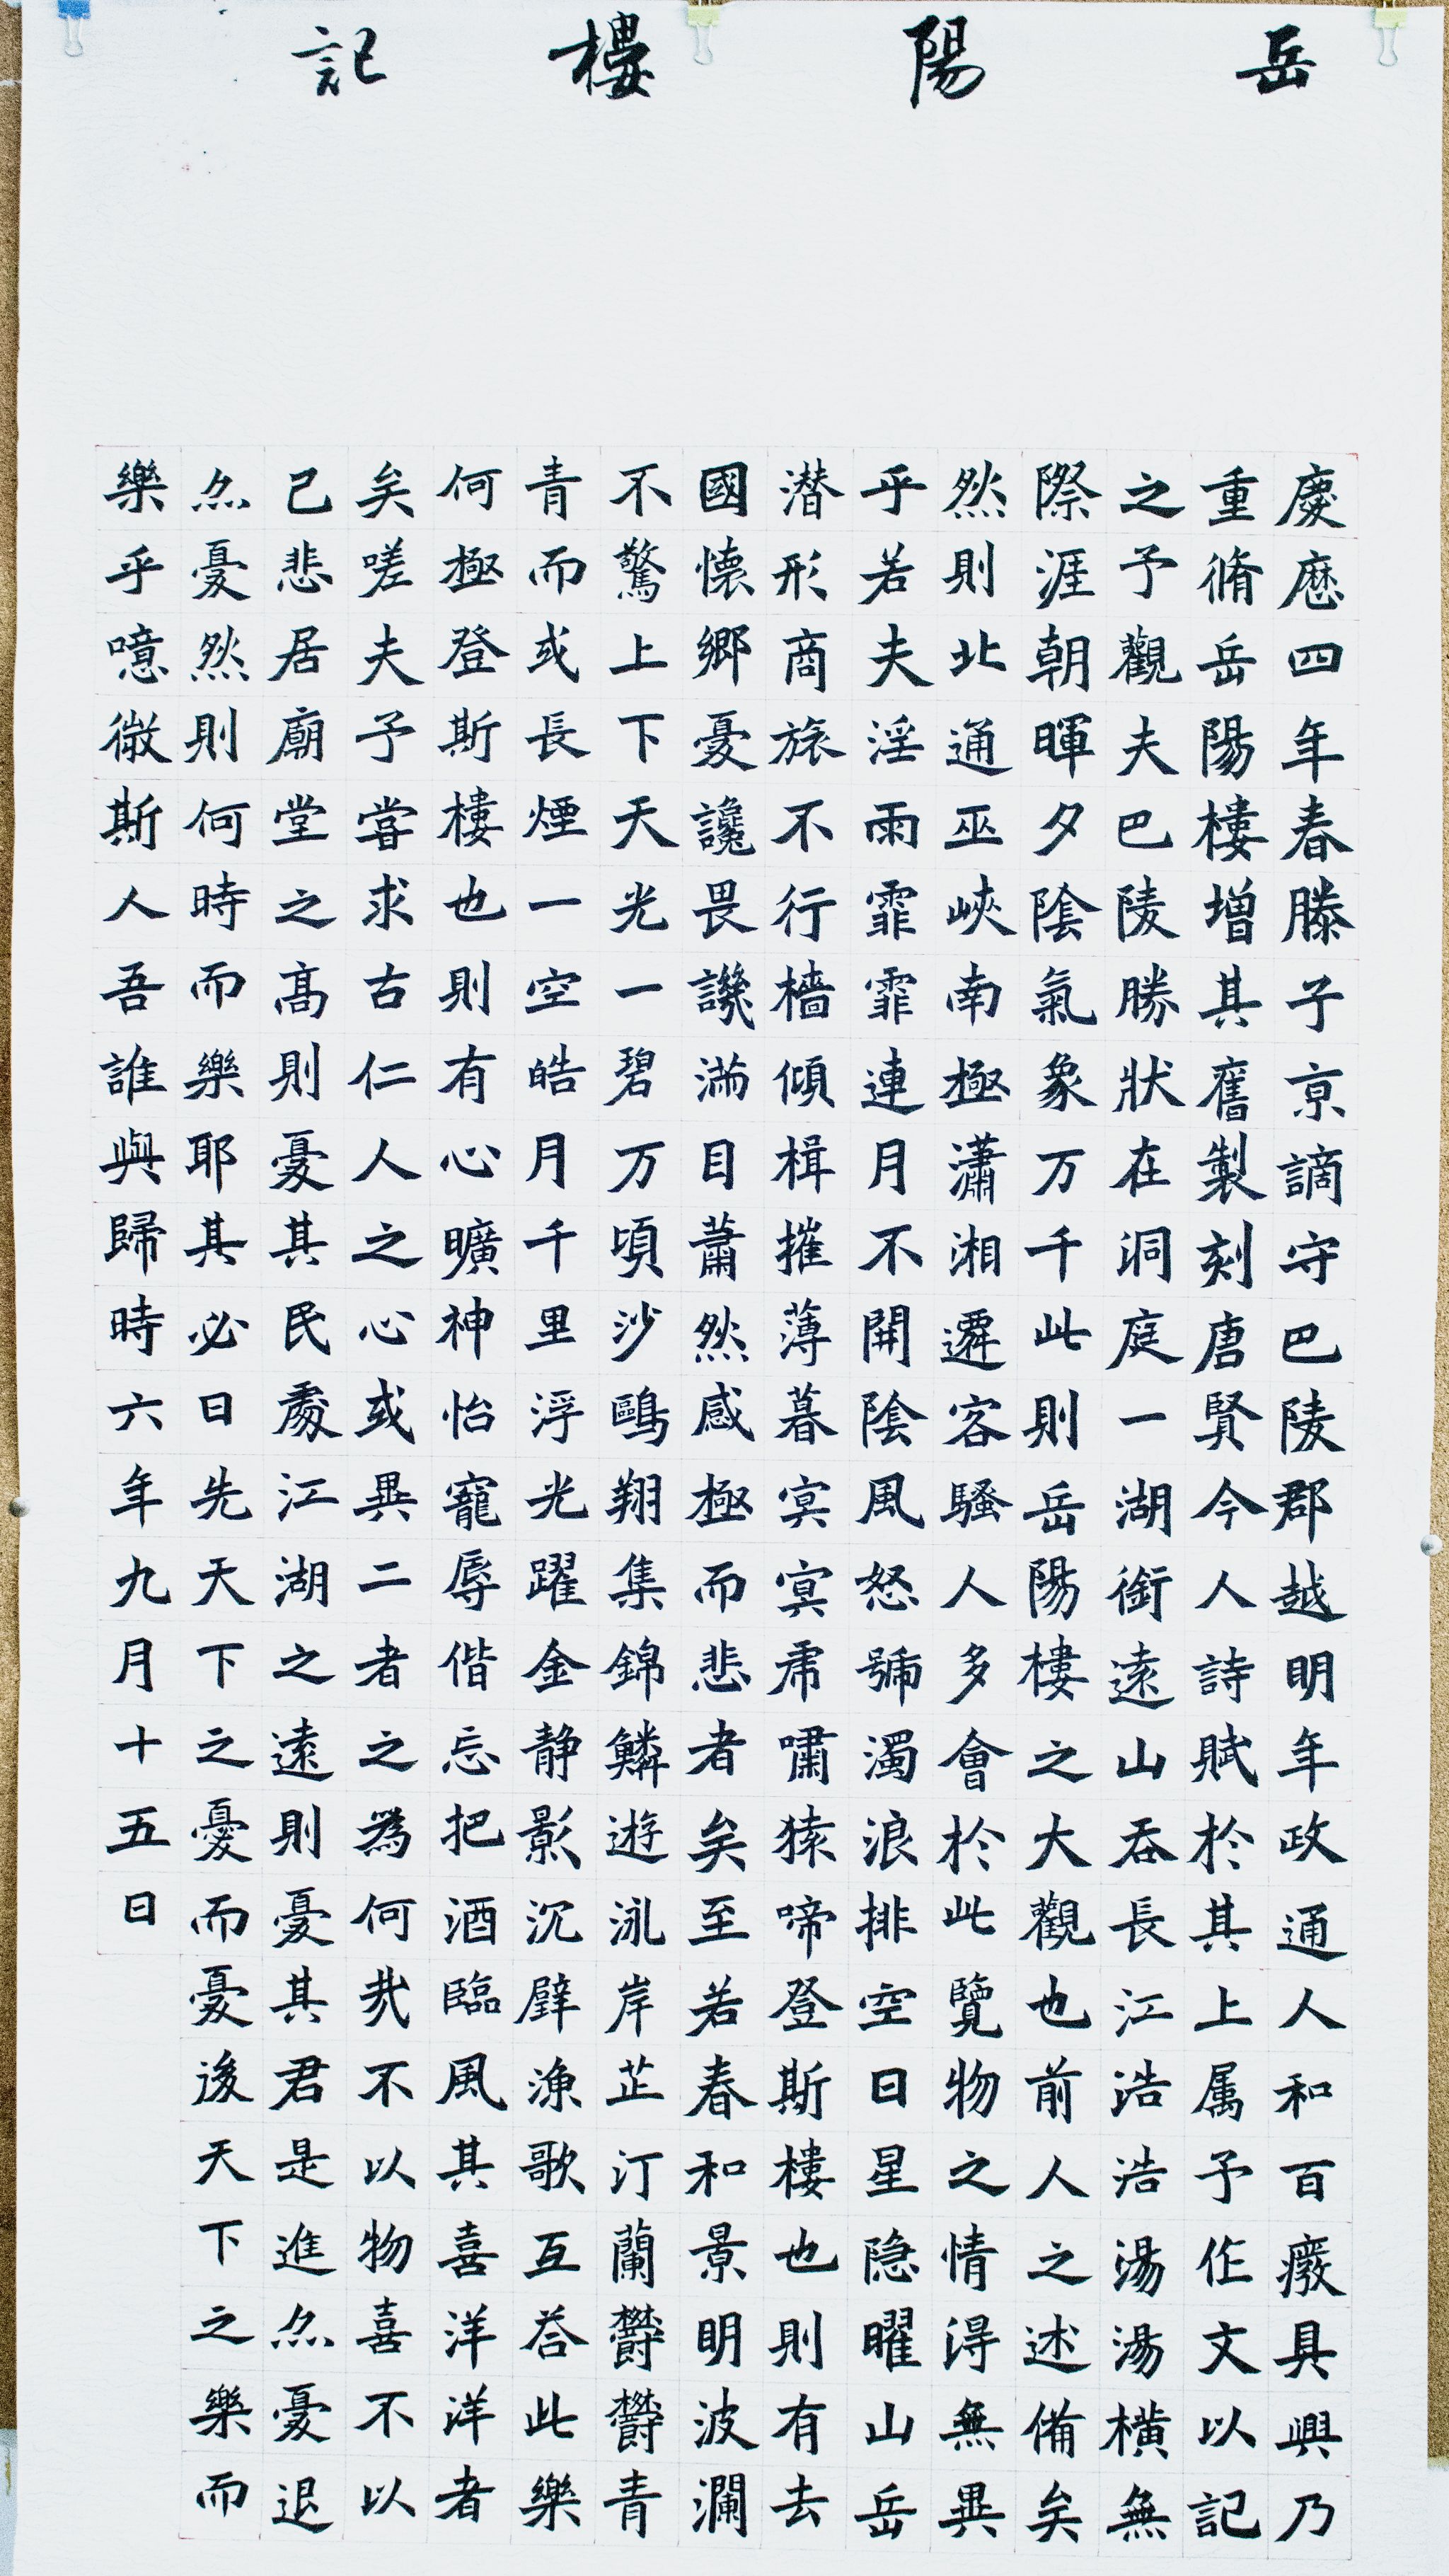 岳陽樓記
慶厯四年春滕子亰謫守巴陵郡越明年政通人和百癈具興乃
重脩岳陽樓增其舊製刻唐賢今人詩賦於其上属予作文以記
之予觀夫巴陵勝狀在洞庭一湖銜遠山吞長江浩浩湯湯橫無
際涯朝暉夕陰氣象万千此則岳陽樓之大觀也前人之述備矣
然則北通巫峽南極瀟湘遷客騷人多會於此覽物之情得無異
乎若夫淫雨霏霏連月不開陰風怒號濁浪排空日星隐曜山岳
潜形商旅不行檣傾楫摧薄暮冥冥虎嘯猿啼登斯樓也則有去
國懷鄉憂讒畏譏滿目蕭然感極而悲者矣至若春和景明波瀾
不驚上下天光一碧万頃沙鷗翔集錦鱗遊泳岸芷汀蘭欝欝青
青而或長煙一空皓月千里浮光躍金静影沉璧漁歌互荅此樂
何極登斯樓也則有心曠神怡寵辱偕忘把酒臨風其喜洋洋者
矣嗟夫予嘗求古仁人之心或異二者之為何哉不以物喜不以
己悲居廟堂之高則憂其民處江湖之遠則憂其君是進亦憂退
亦憂然則何時而樂耶其必曰先天下之憂而憂後天下之樂而
樂乎噫微斯人吾誰與歸時六年九月十五日